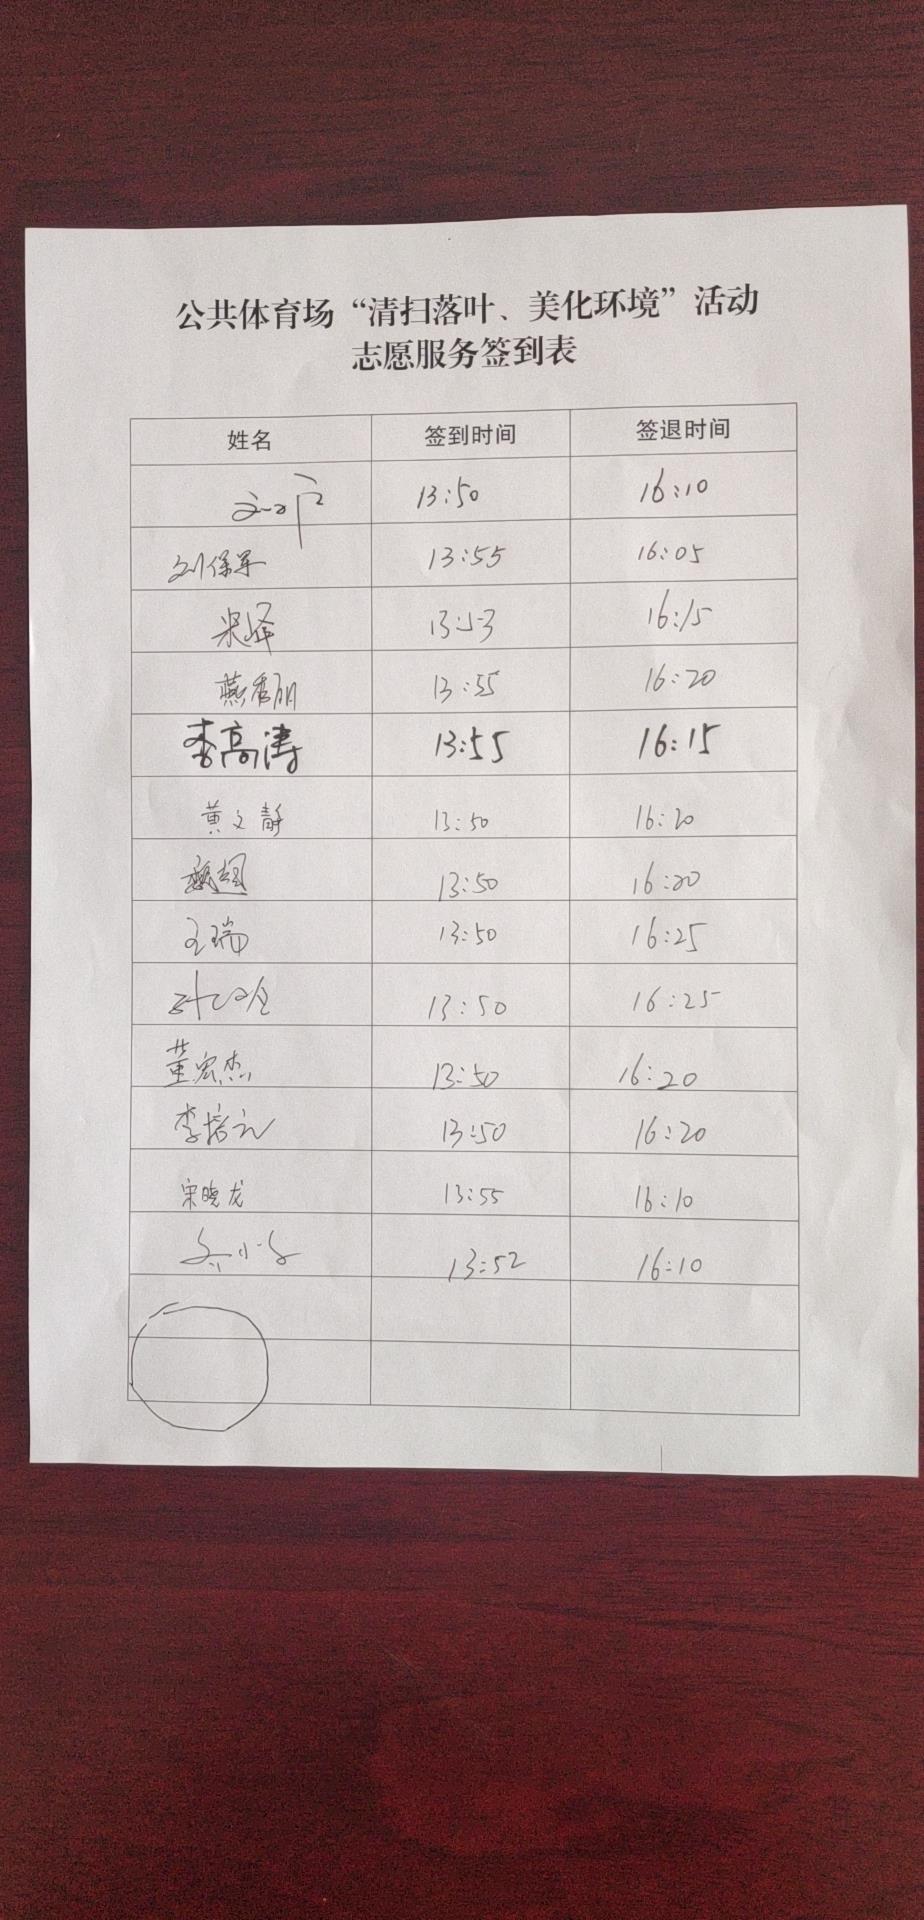 公共体育场“清扫落叶、美化环境”活动
志愿服务签到表
姓名 签到时间 签退时间
13:50 16:10
刘保军 13:55 16:05
梁泽 13:53 16:15
燕秀丽 13:55 16:20
李高涛 13:55 16:15
黄文静 13:50 16:20
13:50 16:20
王瑞 13:50 16:25
13:50 16:25
董宏杰 13:50 16:20
李培元 13:50 16:20
宋晓龙 13:55 16:10
13:52 16:10